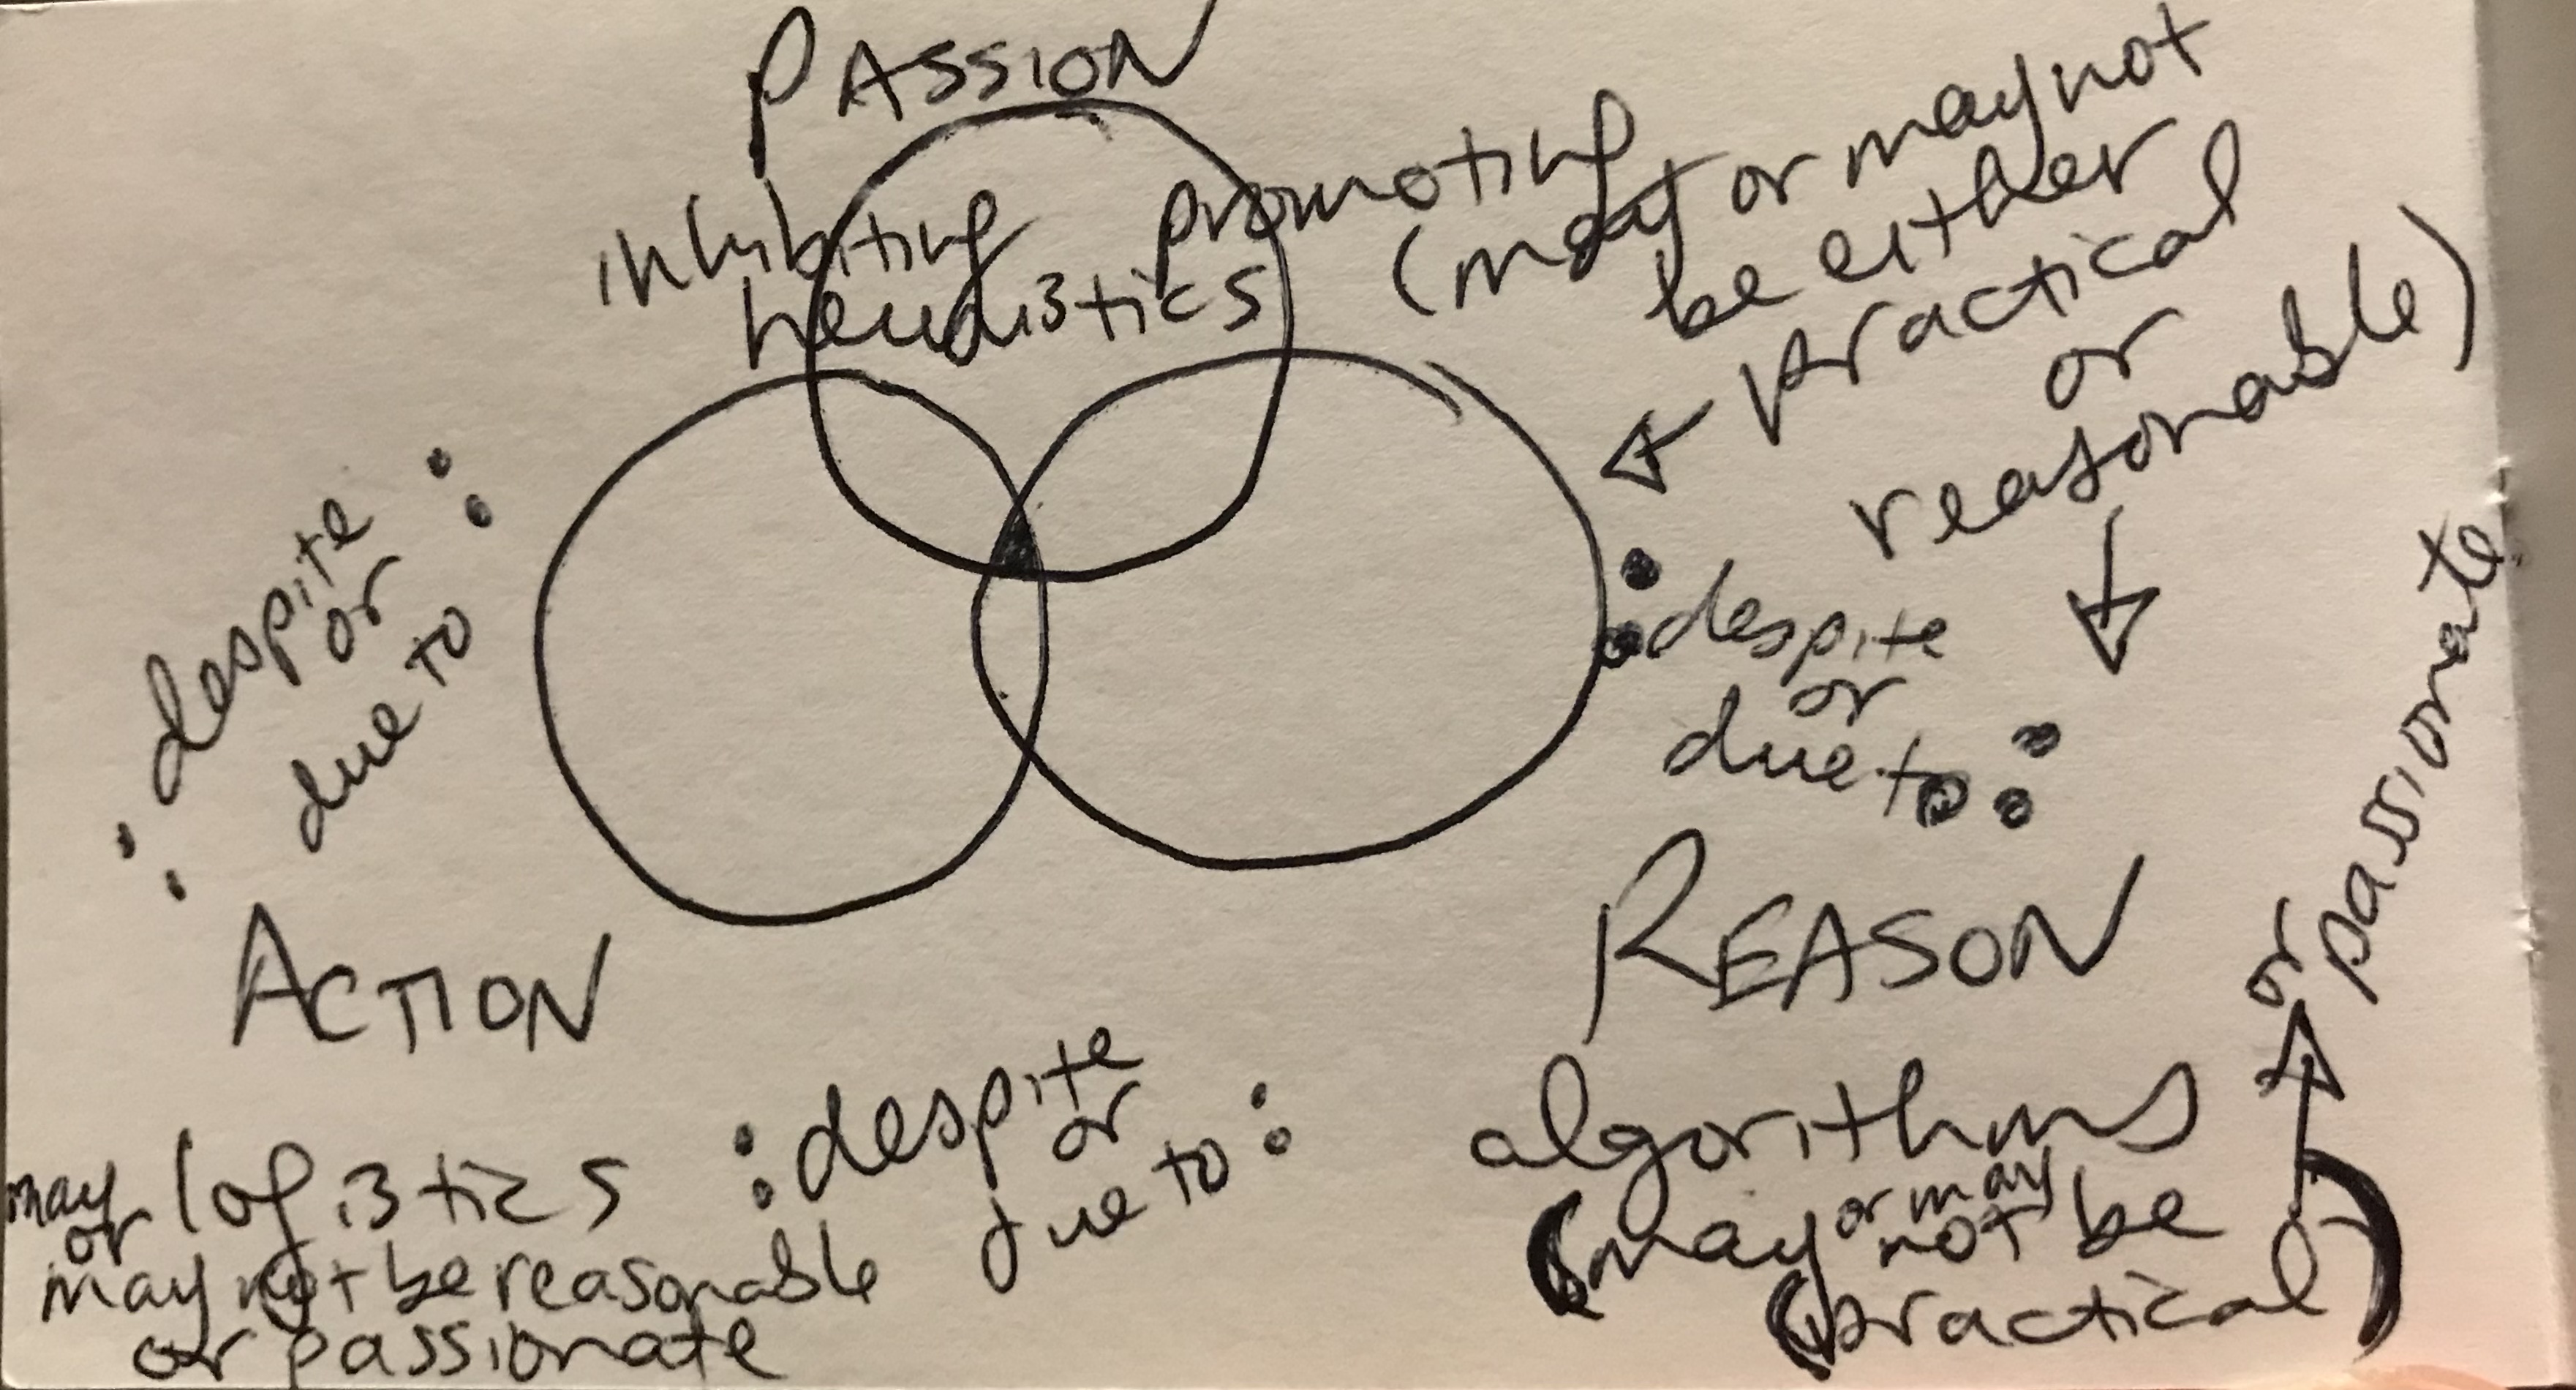 PASSION
inhibiting promoting
heuristics
(may or may not
be either
practical
or
reasonable)
: despite
or
due to :
: despite
or
due to :
ACTION
REASON
logistics
may
or
may not be reasonable
or passionate
: despite
or
due to :
algorithms
(may or may
not be
(practical)
or
passionate